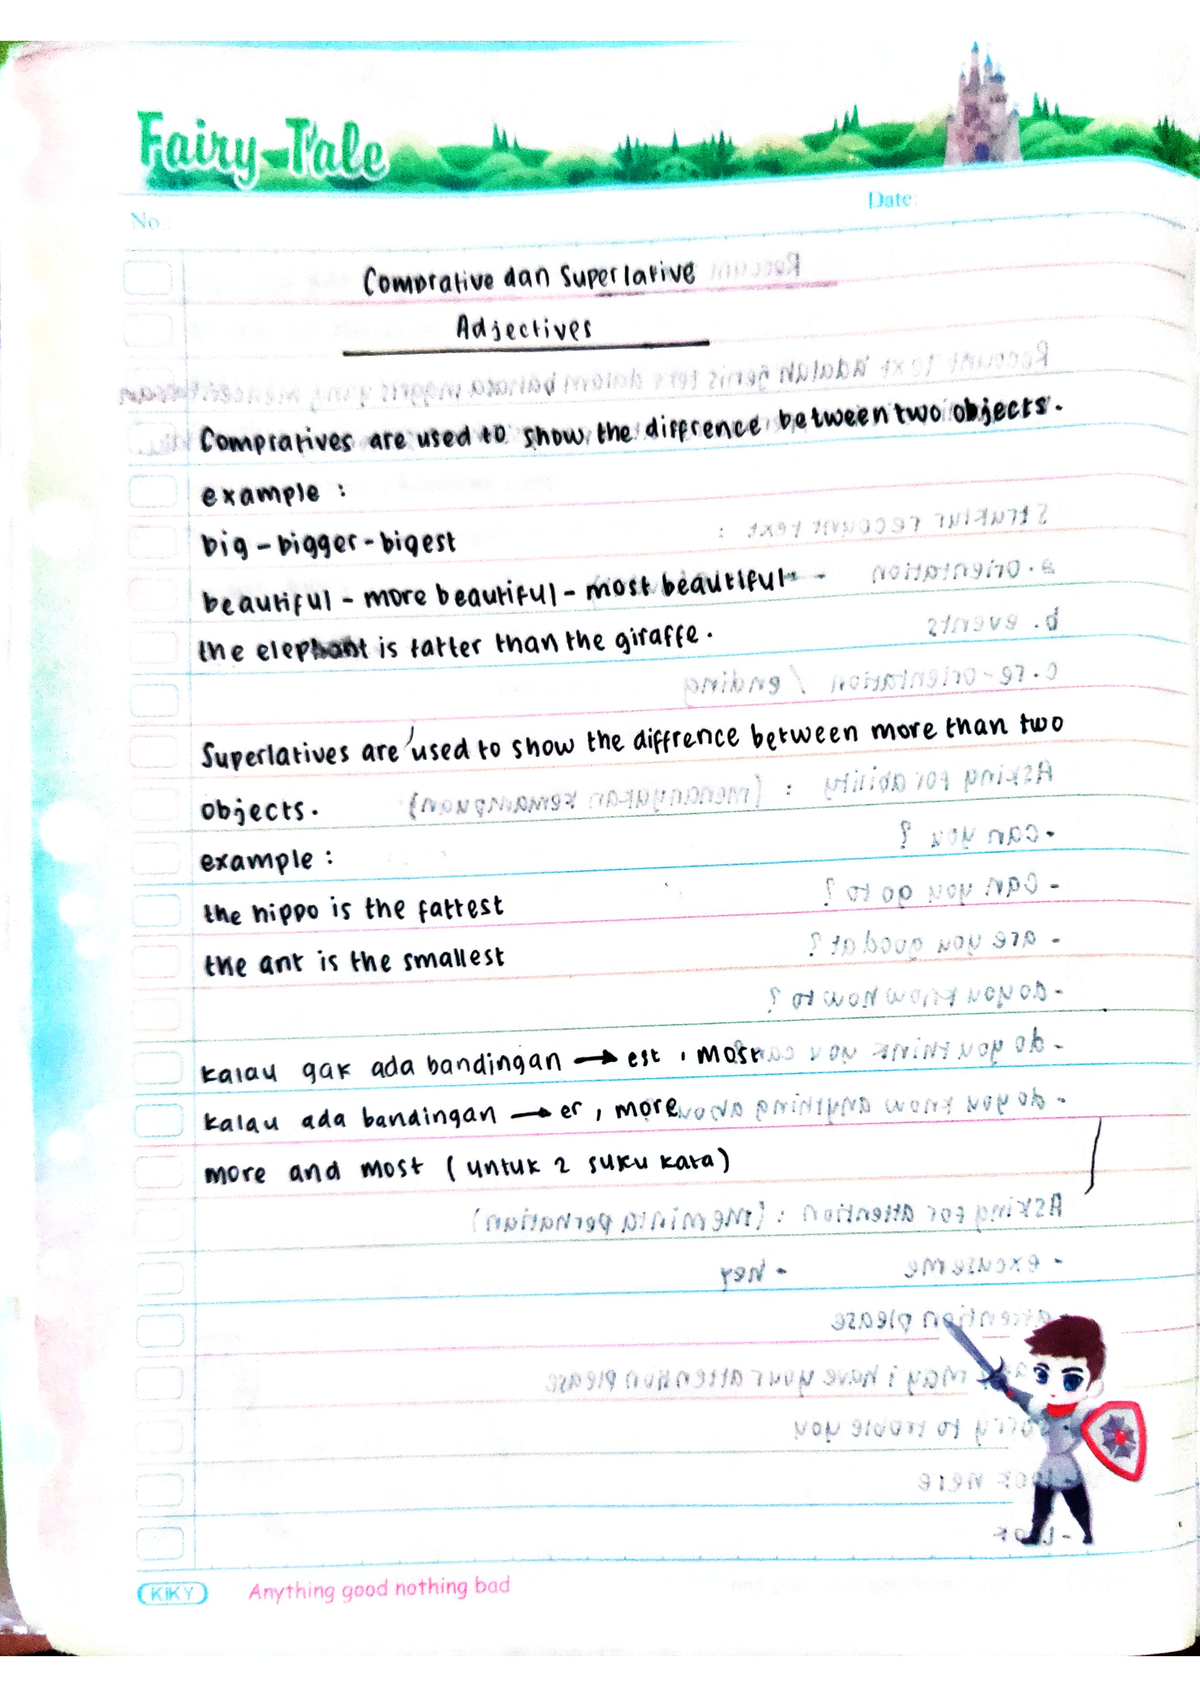 Fairy Tale
No.:
Date:
Comprative dan Superlative
Adjectives
Compratives are used to show the diffrence between two objects.
example :
big - bigger - bigest
beautiful - more beautiful - most beautiful
the elephant is fatter than the giraffe.
Superlatives are used to show the diffrence between more than two
objects.
example :
the hippo is the fattest
the ant is the smallest
kalau gak ada bandingan → est , most
kalau ada bandingan → er , more
more and most ( untuk 2 suku kata )
KIKY
Anything good nothing bad